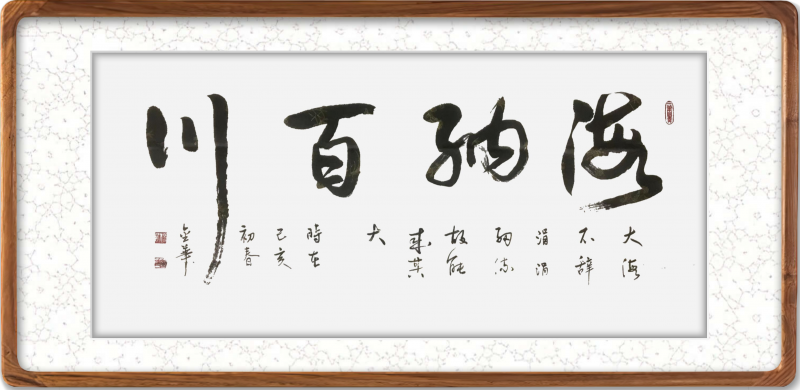 海納百川
大海
不辞
涓涓
細流
故能
成其
大
時在
己亥
初春
金華